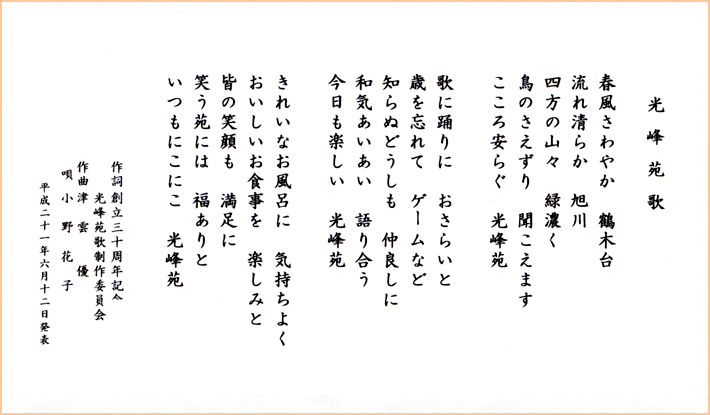 光峰苑歌
春風さわやか　鶴木台
流れ清らか　旭川
四方の山々　緑濃く
鳥のさえずり　聞こえます
こころ安らぐ　光峰苑
歌に踊りに　おさらいと
歳を忘れて　ゲームなど
知らぬどうしも　仲良しに
和気あいあい　語り合う
今日も楽しい　光峰苑
きれいなお風呂に　気持ちよく
おいしいお食事を　楽しみと
皆の笑顔も　満足に
笑う苑には　福ありと
いつもにこにこ　光峰苑
作詞 創立三十周年記念
光峰苑歌制作委員会
作曲 津雲優
唄 小野花子
平成二十一年六月十二日発表